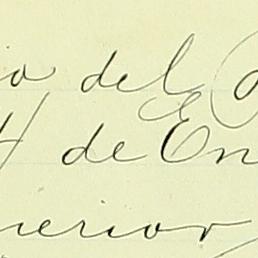 io del
4 de En
nerior